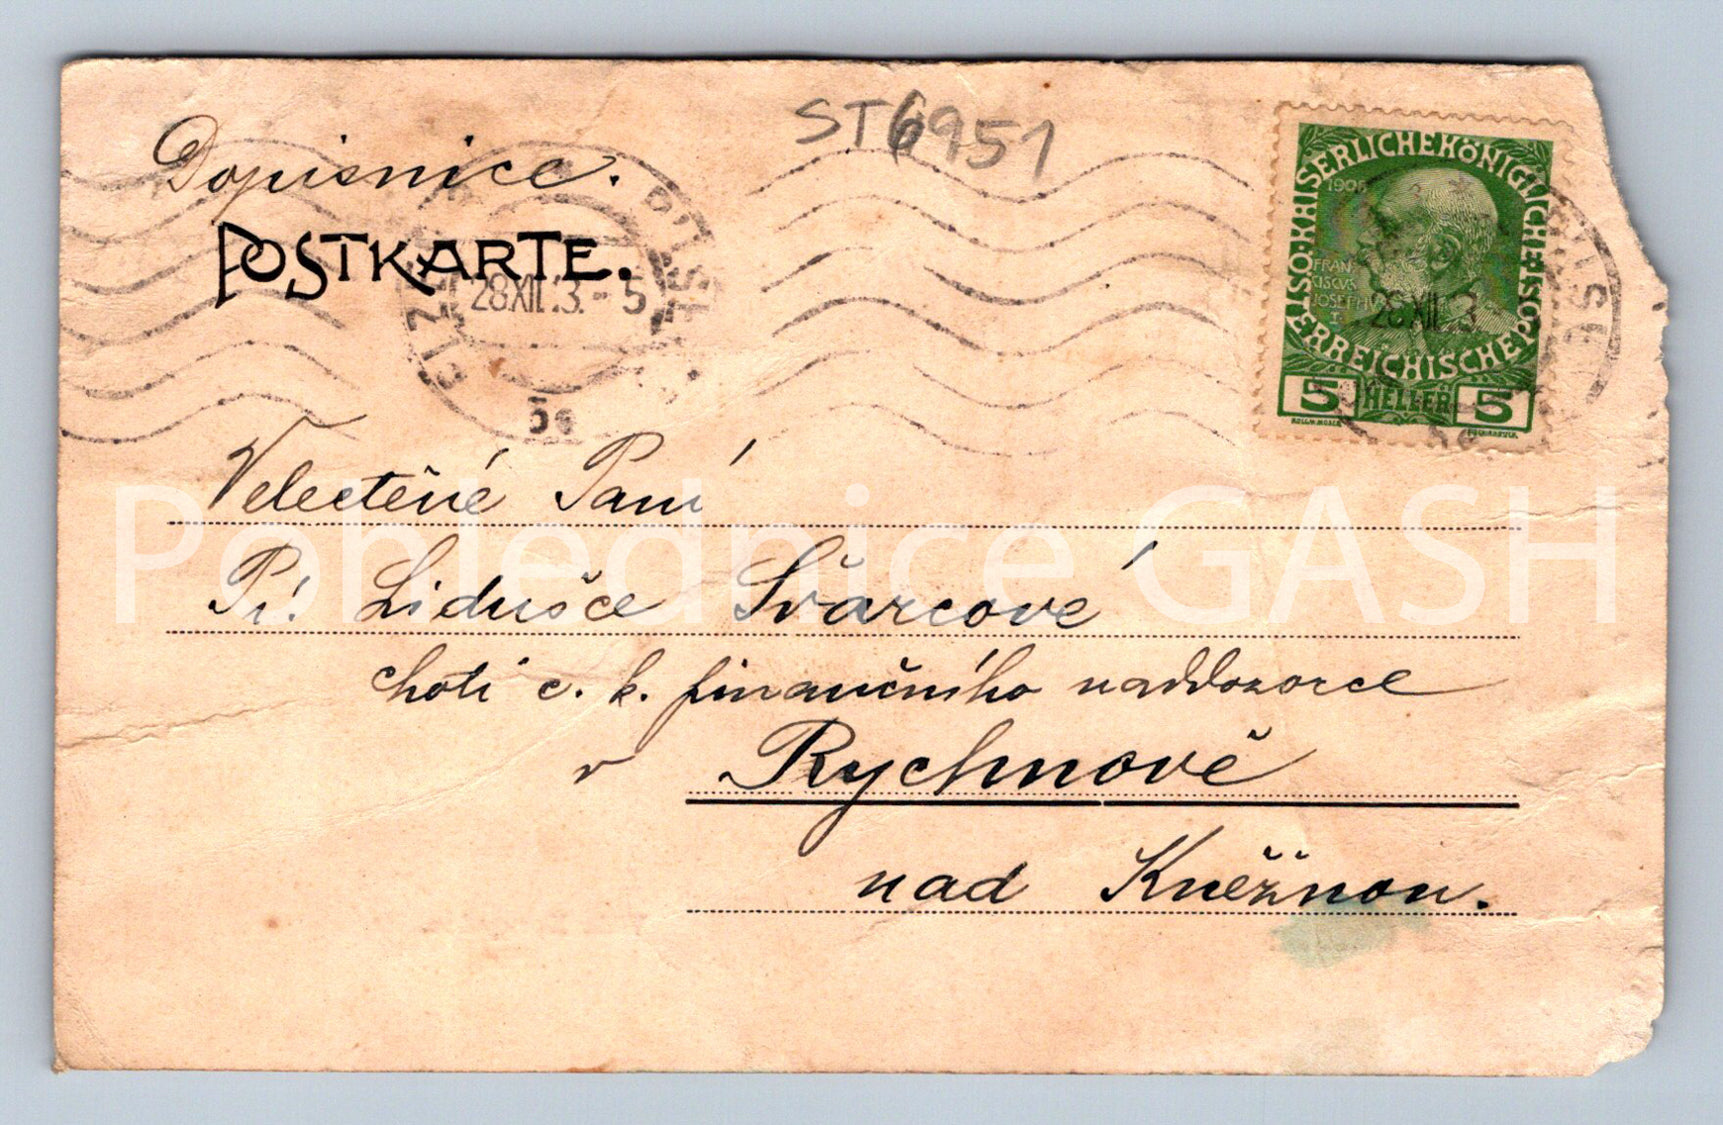 ST6951
Dopisnice.
POSTKARTE.
28 XII 13-5
5e
KAISERLICHE KÖNIGLICHE ÖSTERREICHISCHE POST
1908
FRAN
CISCUS
JOSEPH
I
28 XII 13
5 HELLER 5
KOLOM. MOSER
Velectěné Paní
Pí. Lidušce Švarcové
choti c. k. finančního naddozorce
v Rychnově
nad Kněžnou.
Pohlednice GASH